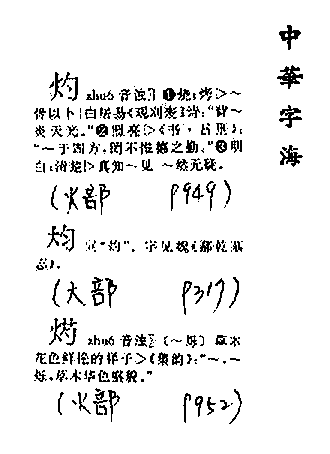 中華字海
灼 zhuó 音浊 ❶烧;烤>～
骨以卜|白居易《观刈麦》诗:"背～
炎天光。"❷照亮>《书·吕刑》:
"～于四方,罔不惟德之勤。"❸明
白;清楚>真知～见 ～然无疑。
(火部 P949)
同"灼"。字见魏《郗乾墓
志》。
(大部 P317)
zhuó 音浊 (～烁) 草木
花色鲜艳的样子>《集韵》:"～,～
烁,草木华色貌。"
(火部 P952)